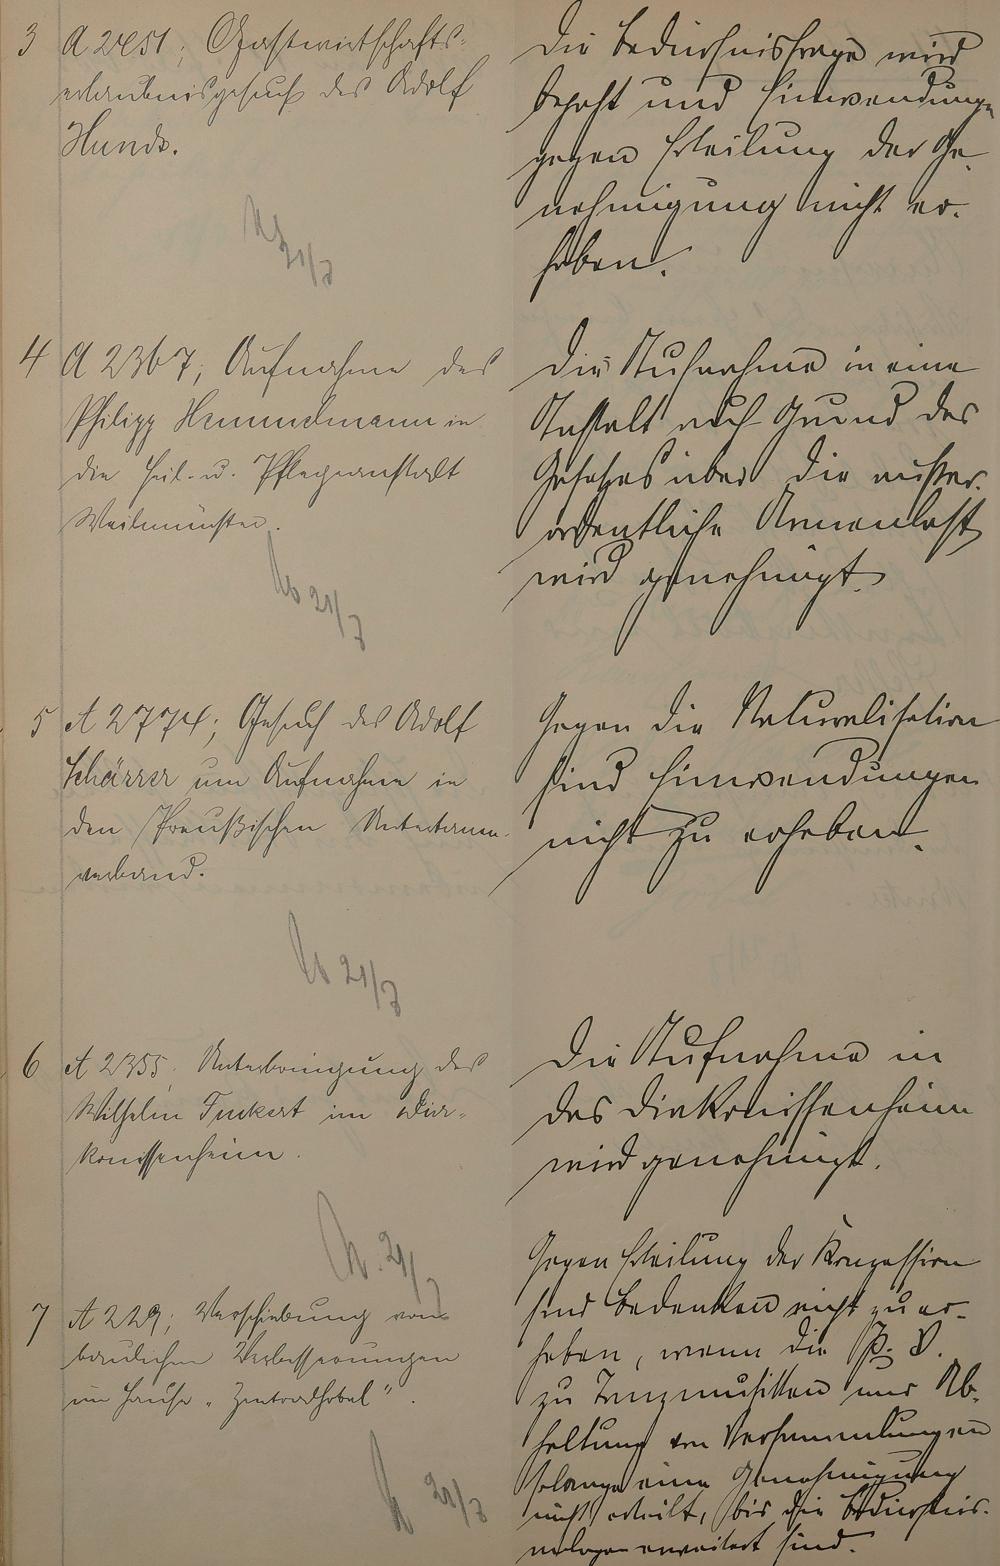 3 A 2451; Gastwirtschafts-
erlaubnisgesuch des Adolf
Hundt.
Die Bedürfnisfrage wird
bejaht und Einwendungen
gegen Erteilung der Ge-
nehmigung nicht er-
hoben.
21/7
4 A 2367; Aufnahme des
Philipp Hemmelmann in
die Heil- u. Pflegeanstalt
Weilmünster.
Die Aufnahme in eine
Anstalt auf Grund des
Gesetzes über die außer-
ordentliche Armenlast
wird genehmigt.
21/7
5 A 2774; Gesuch des Adolf
Schärrer um Aufnahme in
den Preußischen Untertanen-
verband.
Gegen die Naturalisation
sind Einwendungen
nicht zu erheben.
21/7
6 A 2355; Unterbringung des
Wilhelm Tuckert im Dia-
konissenheim.
Die Aufnahme in
das Diakonissenheim
wird genehmigt.
21/7
7 A 229; Verschiebung von
baulichen Verbesserungen
im Hause "Zentralhotel".
Gegen Erteilung der Konzession
sind Bedenken nicht zu er-
heben, wenn die P. V.
zu Tanzmusiken und Ab-
haltung von Versammlungen
solange eine Genehmigung
nicht erteilt, bis die Bedürfnis-
anlagen erweitert sind.
21/7